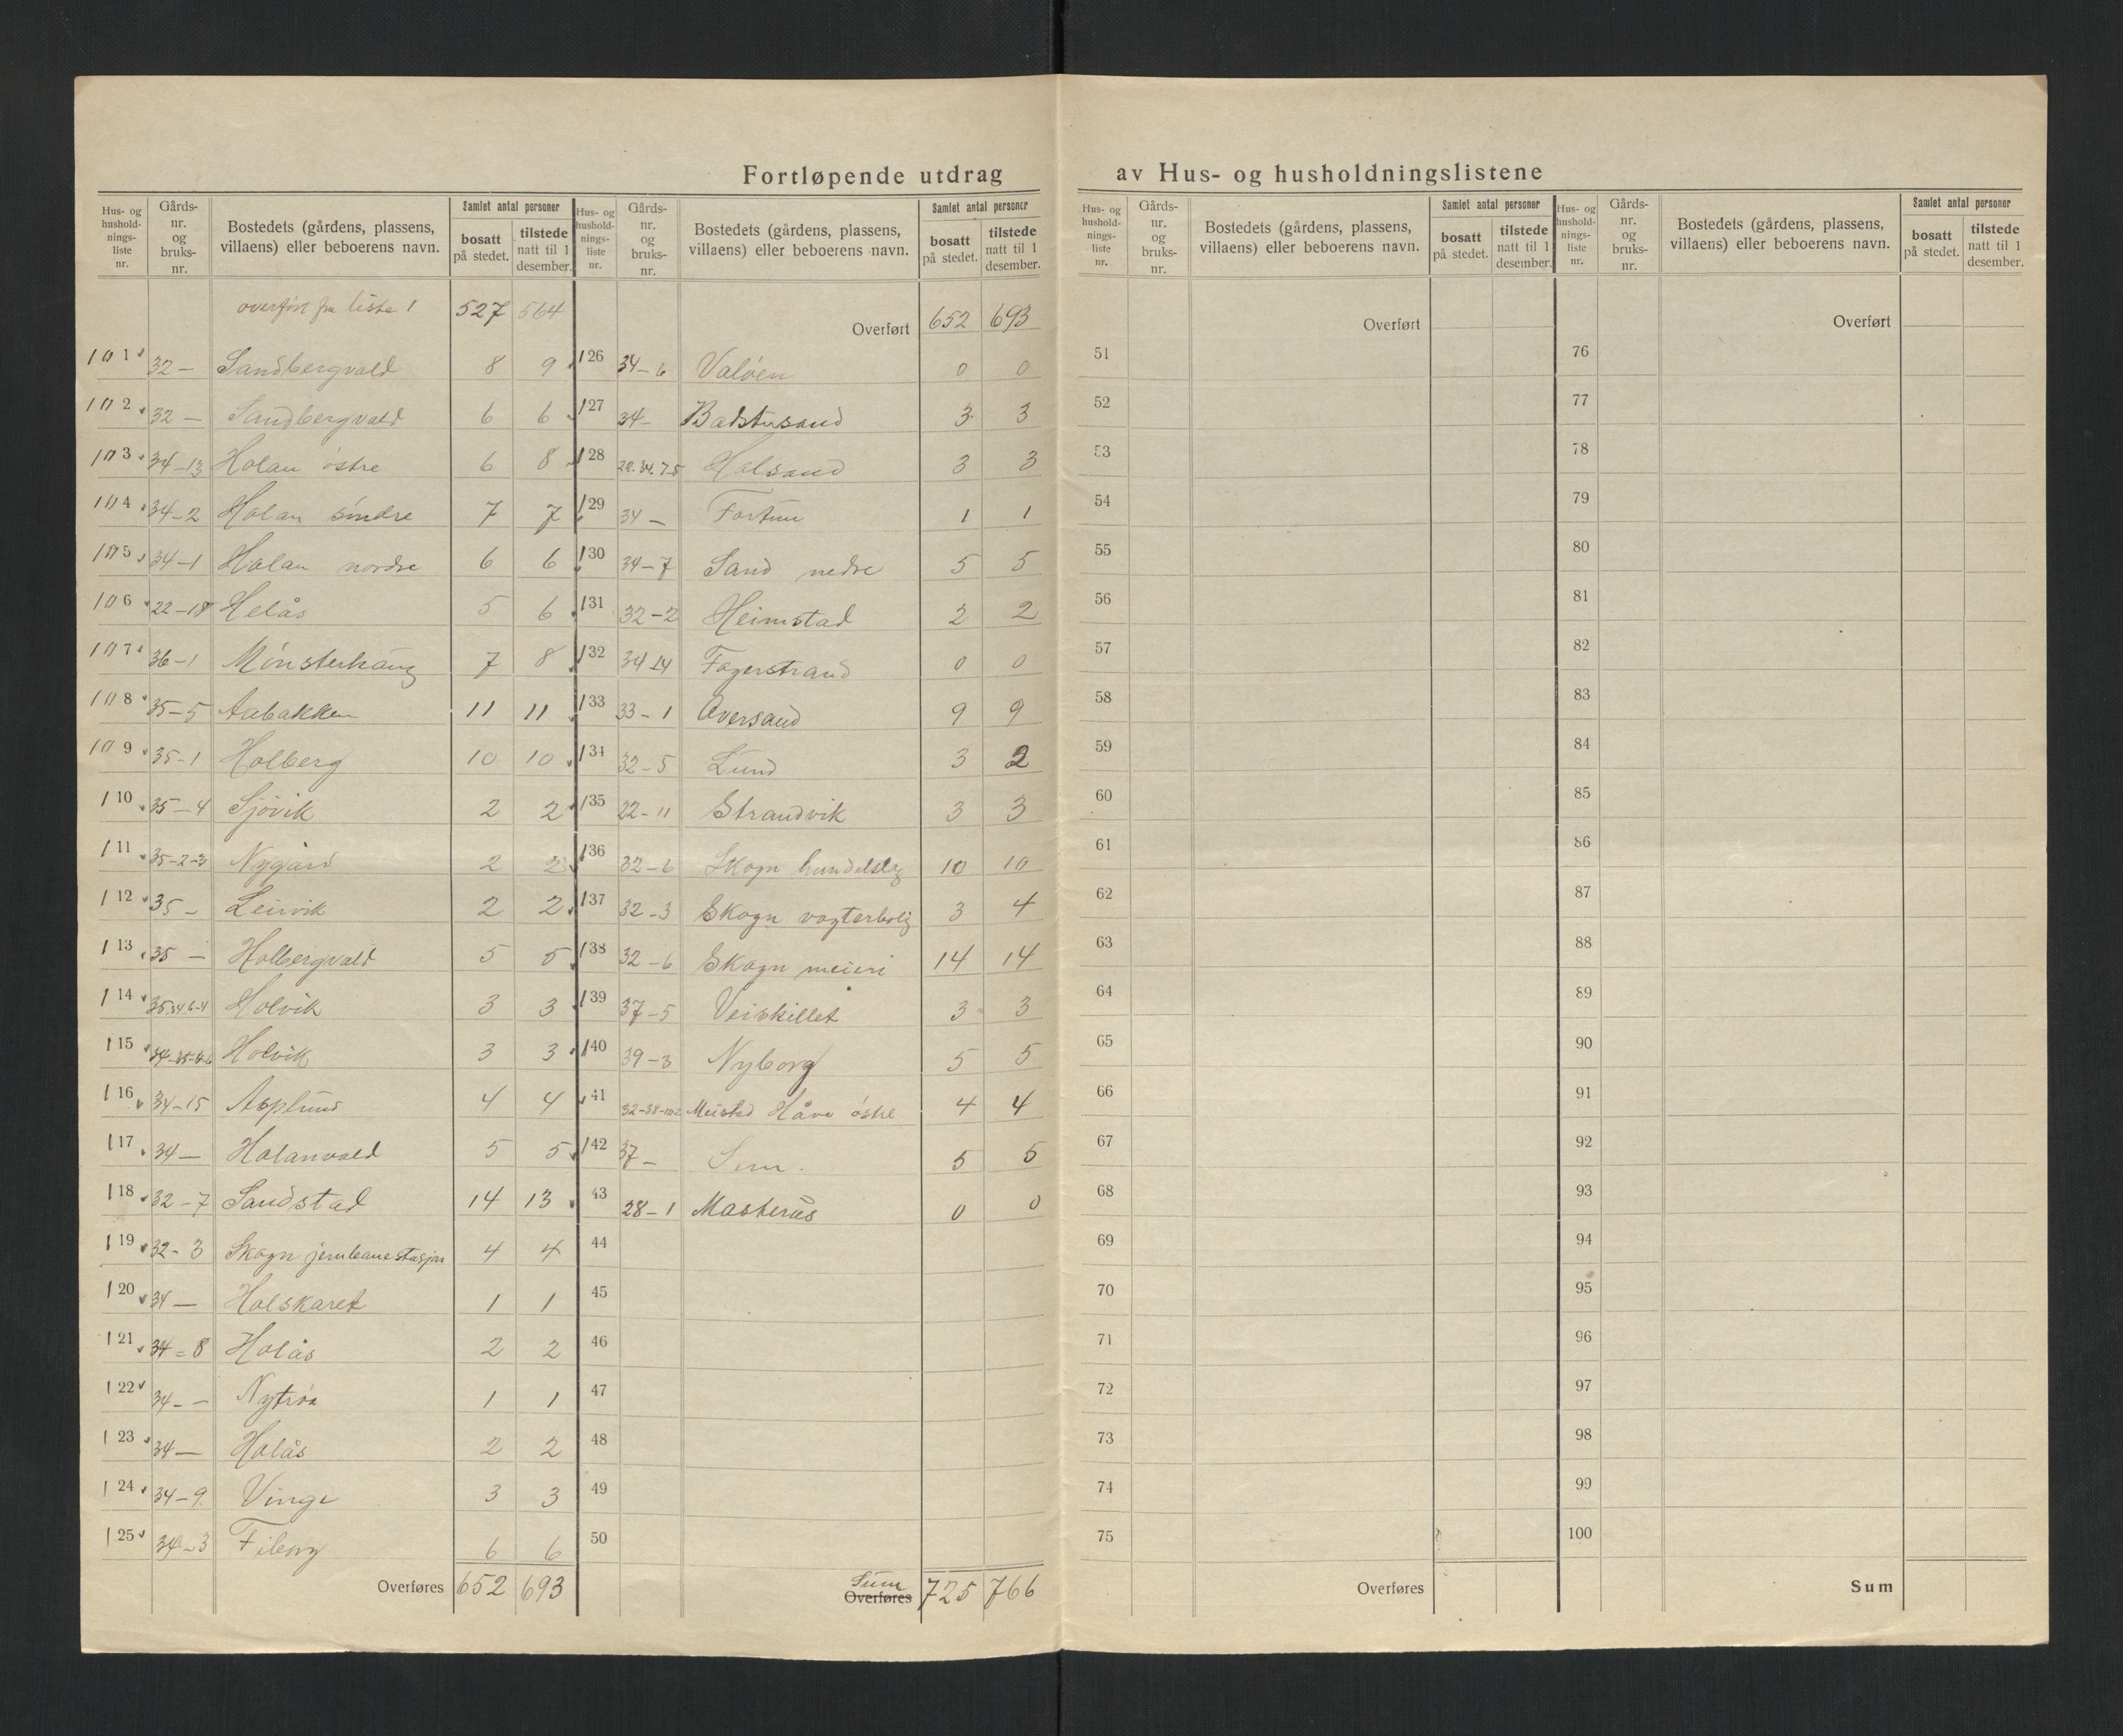 Fortløpende utdrag av Hus- og husholdningslistene
Hus- og hushold-nings-liste nr. | Gårds-nr. og bruks-nr. | Bostedets (gårdens, plassens, villaens) eller beboerens navn. | Samlet antal personer | bosatt på stedet. | tilstede natt til 1 desember.
overført fra liste 1 527 564
101 32 — Sandbergvald 8 9
102 32 — Sandbergvald 6 6
103 34–13 Holan östre 6 8
104 34–2 Holan söndre 7 7
105 34–1 Holan nordre 6 6
106 22–18 Helås 5 6
107 36–1 Mönsterhaug 7 8
108 35–5 Aabakken 11 11
109 35–1 Holberg 10 10
110 35–4 Sjövik 2 2
111 35–2–3 Nygård 2 2
112 35 – Leirvik 2 2
113 35 — Holbergvald 5 5
114 Holvik 3 3
115 Holvik 3 3
116 34–15 Asplund 4 4
117 34 — Holanvald 5 5
118 32–7 Sandstad 14 13
119 32–3 Skogn jernbanestasjon 4 4
120 34 — Holskaret 1 1
121 34=8 Holås 2 2
122 34 – – Nytröa 1 1
123 34 — Holås 2 2
124 34–9 Vinge 3 3
125 34–3 Fiborg 6 6
Overføres 652 693
Hus- og hushold-nings-liste nr. | Gårds-nr. og bruks-nr. | Bostedets (gårdens, plassens, villaens) eller beboerens navn. | Samlet antal personer | bosatt på stedet. | tilstede natt til 1 desember.
Overført 652 693
126 34–6 Valöen 0 0
127 34– Badstusand 3 3
128 Holsand 3 3
129 34 — Fortun 1 1
130 34–7 Sand nedre 5 5
131 32–2 Heimstad 2 2
132 34–14 Fagerstrand 0 0
133 33–1 Oversand 9 9
134 32–5 Lund 3 2
135 22–11 Strandvik 3 3
136 32–6 Skogn handelslag 10 10
137 32–3 Skogn vogterbolig 3 4
138 32–6 Skogn meieri 14 14
139 37–5 Veiskillet 3 3
140 39–3 Nyborg 5 5
41 Meistad Håve östre 4 4
142 37 – Sem. 5 5
43 28–1 Masterås 0 0
44
45
46
47
48
49
50
Sum Overføres 725 766
Hus- og hushold-nings-liste nr. | Gårds-nr. og bruks-nr. | Bostedets (gårdens, plassens, villaens) eller beboerens navn. | Samlet antal personer | bosatt på stedet. | tilstede natt til 1 desember.
Overført
51
52
53
54
55
56
57
58
59
60
61
62
63
64
65
66
67
68
69
70
71
72
73
74
75
Overføres
Hus- og hushold-nings-liste nr. | Gårds-nr. og bruks-nr. | Bostedets (gårdens, plassens, villaens) eller beboerens navn. | Samlet antal personer | bosatt på stedet. | tilstede natt til 1 desember.
Overført
76
77
78
79
80
81
82
83
84
85
86
87
88
89
90
91
92
93
94
95
96
97
98
99
100
Sum